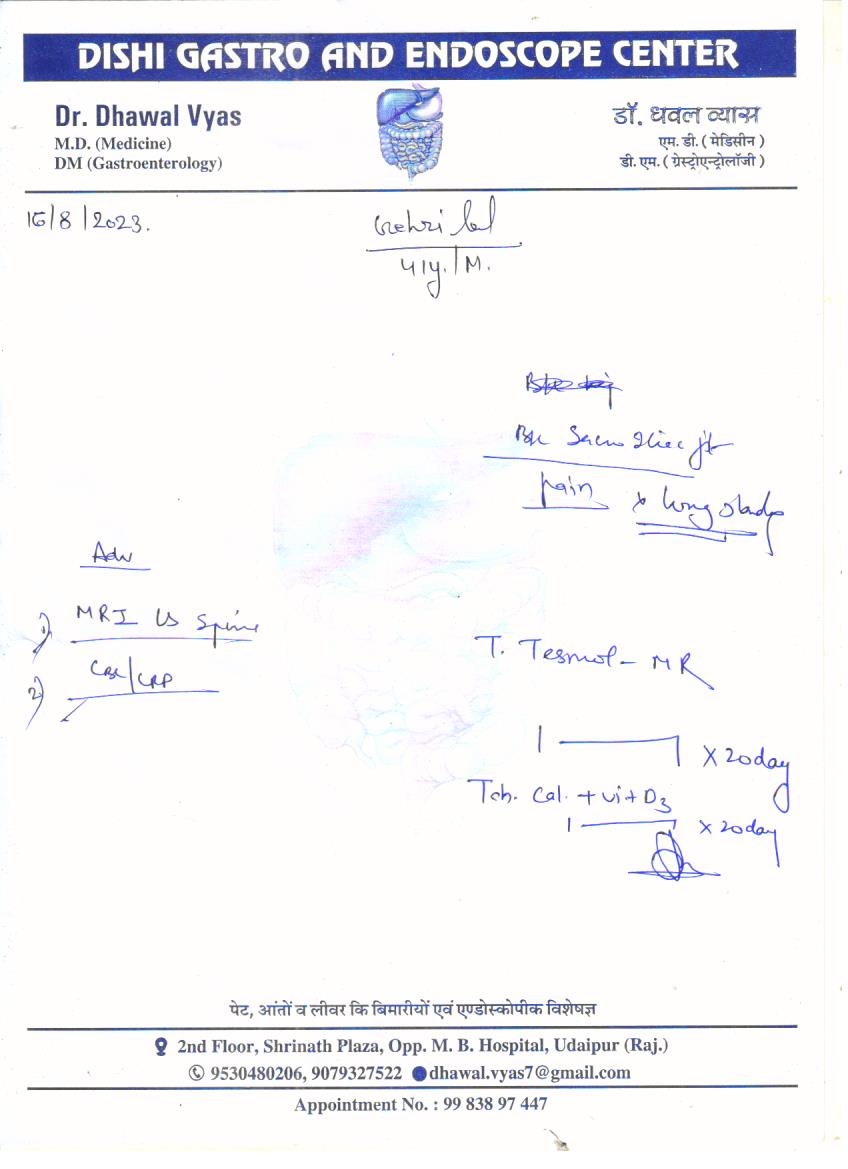 DISHI GASTRO AND ENDOSCOPE CENTER
Dr. Dhawal Vyas
M.D. (Medicine)
DM (Gastroenterology)
डॉ. धवल व्यास
एम. डी. ( मेडिसीन )
डी. एम. ( ग्रेस्ट्रोएन्ट्रोलॉजी )
16/8/2023.
41y. / M.
Sacro Iliac jt
pain x long
Adv
1) MRI LS Spine
2) CBC/CRP
T. Tesmol - MR
1 1 x 20 day
Tab. Cal. + vit D3
1 x 20 day
पेट, आंतों व लीवर कि बिमारीयों एवं एण्डोस्कोपीक विशेषज्ञ
2nd Floor, Shrinath Plaza, Opp. M. B. Hospital, Udaipur (Raj.)
9530480206, 9079327522 dhawal.vyas7@gmail.com
Appointment No. : 99 838 97 447